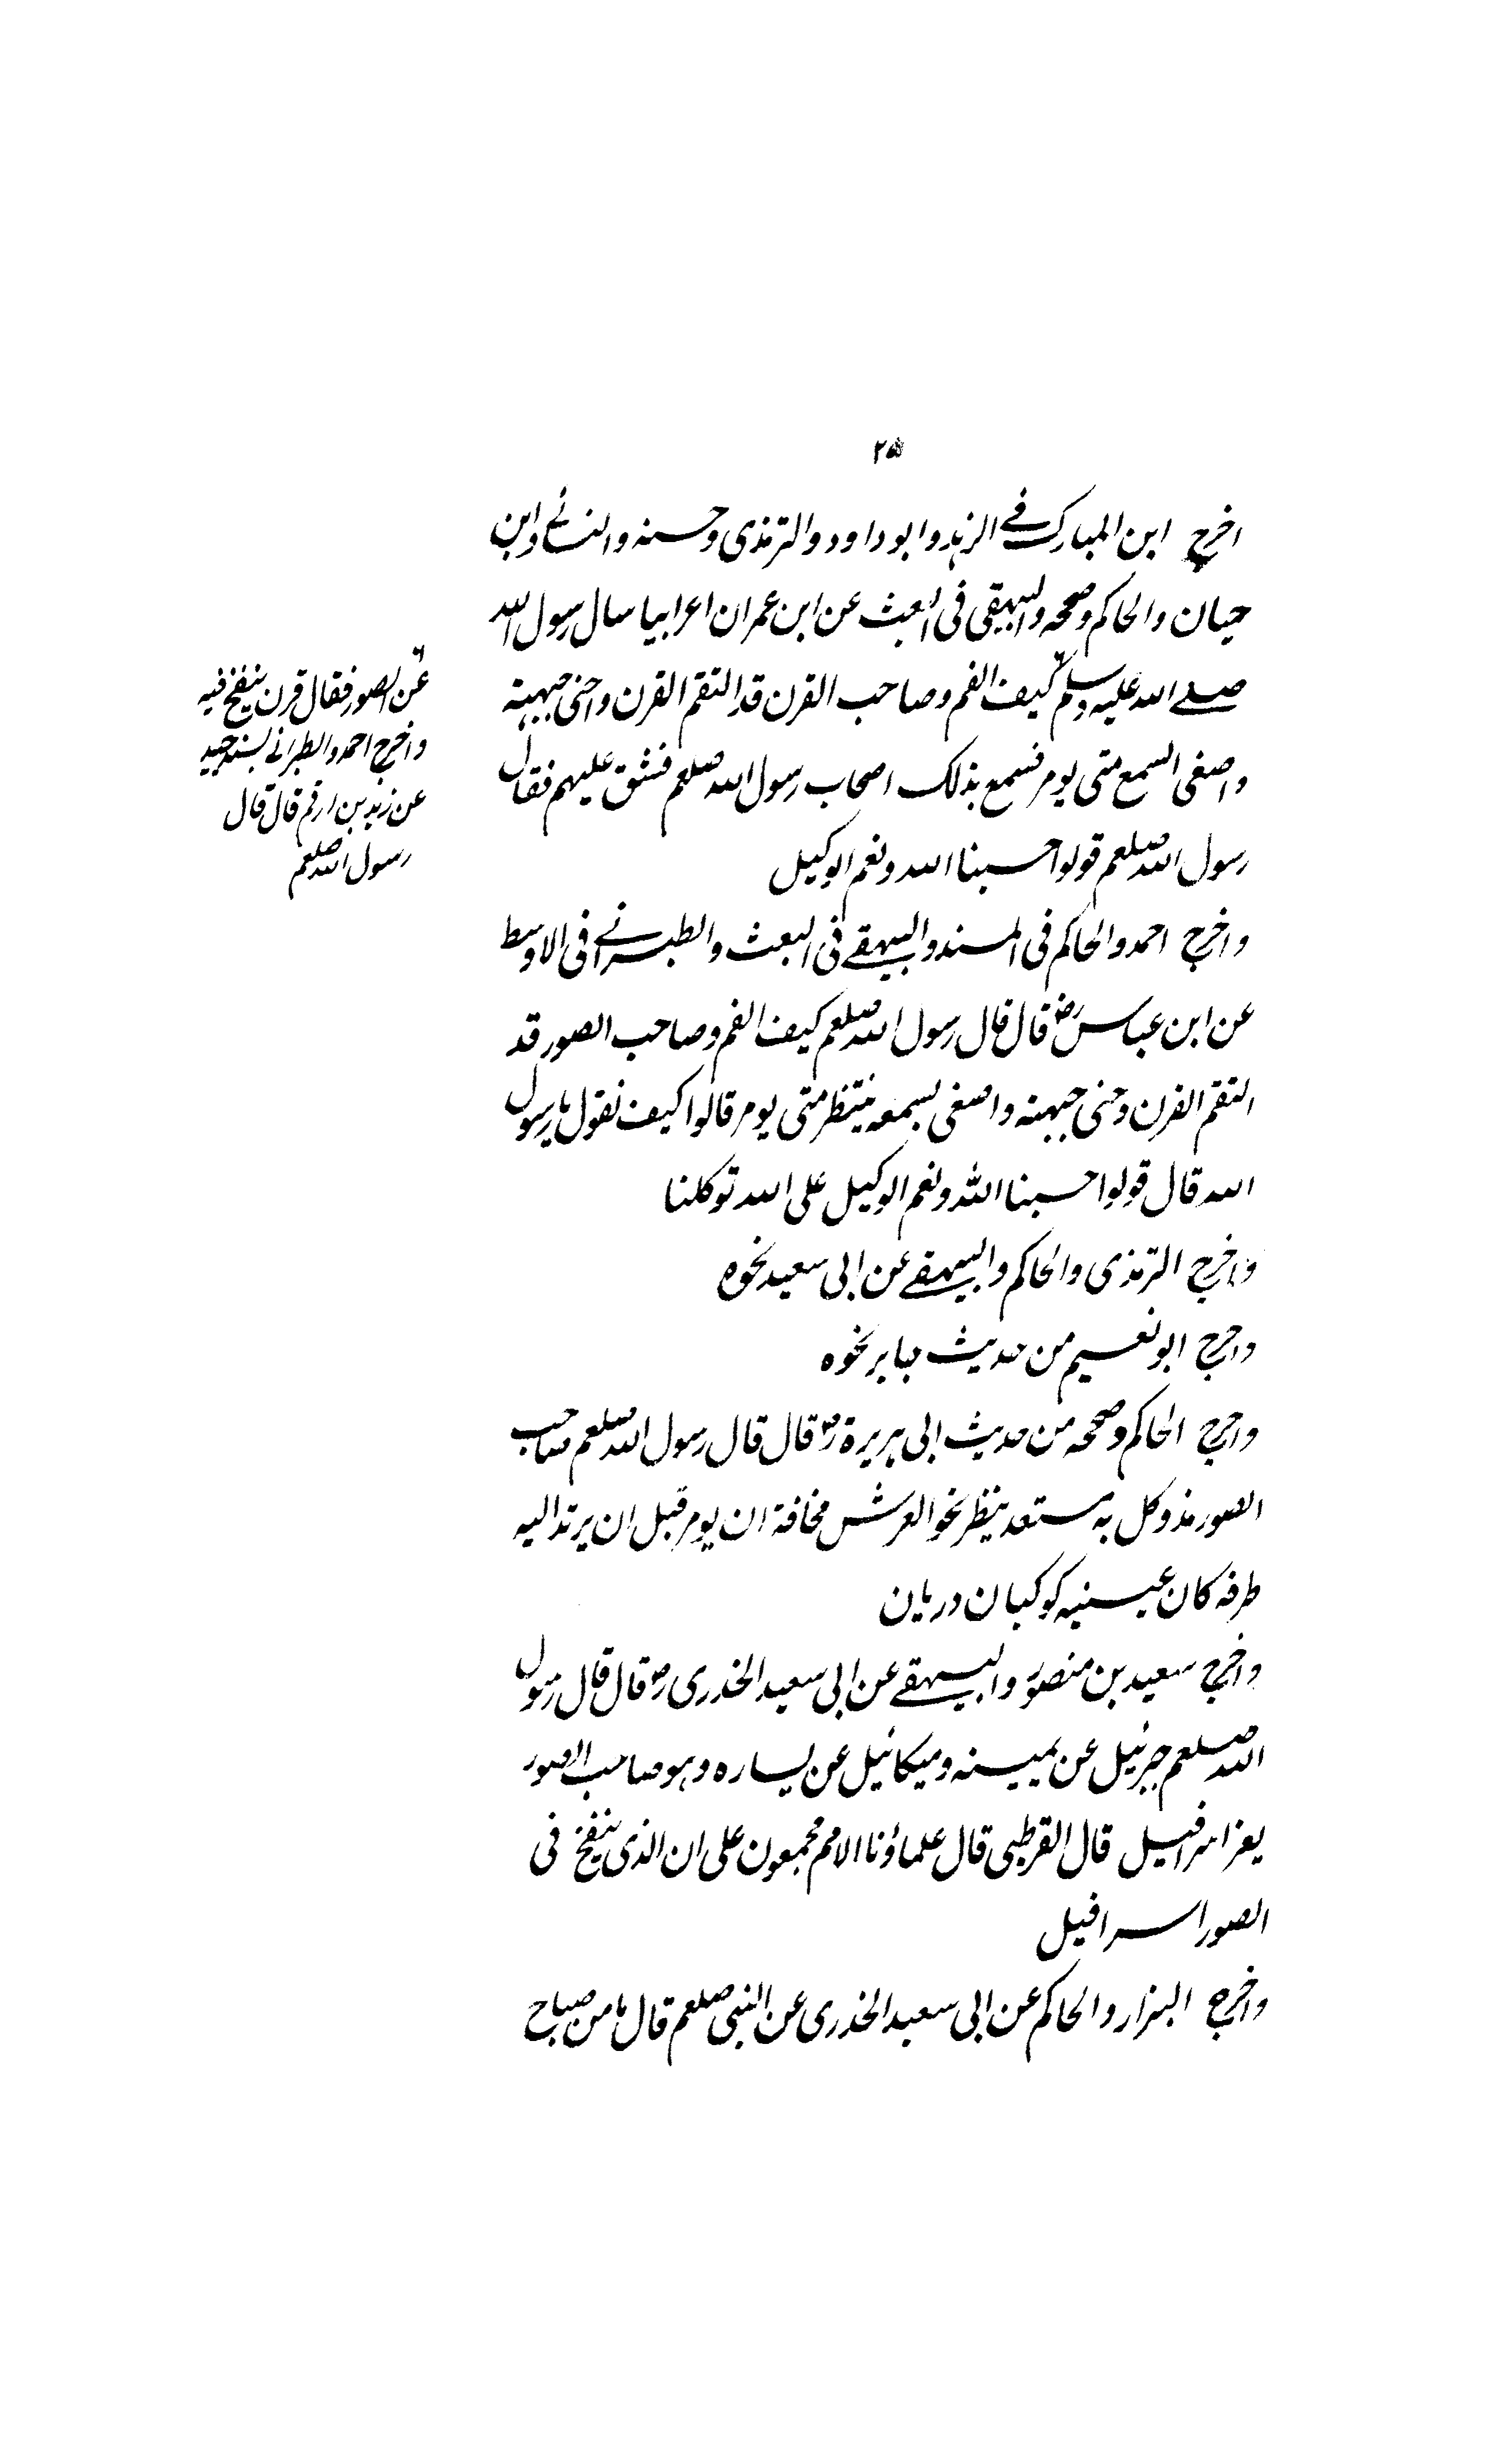 ۲۵
اخرج ابن المبارک فے الزہد وابو داود والترمذی وحسنہ والنسائے وابن
حیان والحاکم وصححہ والبیہقی فی البعث عن ابن عمر ان اعرابیا سال رسول اللہ
صلے اللہ علیہ وسلم کیف انعم وصاحب القرن قد التقم القرن واحنی جبہتہ
واصغی السمع متی یومر فسمع بذلک اصحاب رسول اللہ صلعم فشق علیہم فقال
رسول اللہ صلعم قولوا حسبنا اللہ ونعم الوکیل
واخرج احمد والحاکم فی المسند والبیہقے فی البعث والطبرانے فی الاوسط
عن ابن عباس رض قال قال رسول اللہ صلعم کیف انعم وصاحب الصور قد
التقم القرن وحنی جبہتہ واصغی بسمعہ ینتظر متی یومر قالوا کیف نقول یا رسول
اللہ قال قولوا حسبنا اللہ ونعم الوکیل علی اللہ توکلنا
واخرج الترمذی والحاکم والبیہقے عن ابی سعید نحوہ
واخرج ابو نعیم من حدیث جابر نحوہ
واخرج الحاکم وصححہ من حدیث ابی ہریرة رض قال قال رسول اللہ صلعم صاحب
الصور مذ وکل بہ مستعد ینظر نحو العرش مخافة ان یومر قبل ان یرتد الیہ
طرفہ کان عینیہ کوکبان دریان
واخرج سعید بن منصور والبیہقے عن ابی سعید الخدری رض قال قال رسول
اللہ صلعم جبرئیل عن یمینہ ومیکائیل عن یسارہ وہو صاحب الصور
یعز اسرافیل قال القرطبی قال علماؤنا الامم مجمعون علی ان الذی ینفخ فی
الصور اسرافیل
واخرج البزار والحاکم عن ابی سعید الخدری عن النبی صلعم قال ما من صباح
عن الصور فقال قرن ینفخ فیہ
واخرج احمد والطبرانے بسند جید
عن زید بن ارقم قال قال
رسول اللہ صلعم